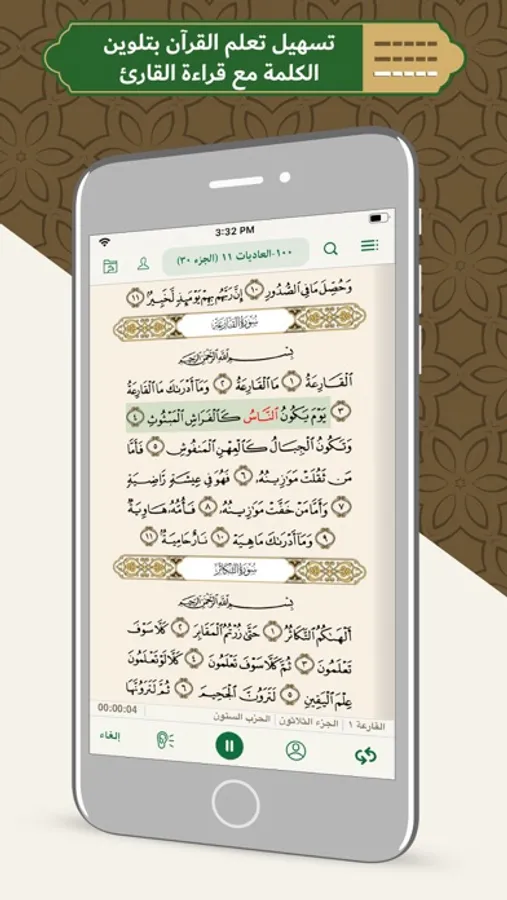 تسهيل تعلم القرآن بتلوين
الكلمة مع قراءة القارئ
3:32 PM
١٠٠-العاديات ١١ (الجزء ٣٠)
وَحُصِّلَ مَا فِي الصُّدُورِ ١٠ إِنَّ رَبَّهُم بِهِمْ يَوْمَئِذٍ لَّخَبِيرٌ ١١
سُورَةُ القَارِعَةِ
بِسْمِ اللَّهِ الرَّحْمَنِ الرَّحِيمِ
الْقَارِعَةُ ١ مَا الْقَارِعَةُ ٢ وَمَا أَدْرَىٰكَ مَا الْقَارِعَةُ
٣ يَوْمَ يَكُونُ النَّاسُ كَالْفَرَاشِ الْمَبْثُوثِ ٤
وَتَكُونُ الْجِبَالُ كَالْعِهْنِ الْمَنفُوشِ ٥ فَأَمَّا
مَن ثَقُلَتْ مَوَٰزِينُهُۥ ٦ فَهُوَ فِي عِيشَةٍ رَّاضِيَةٍ
٧ وَأَمَّا مَنْ خَفَّتْ مَوَٰزِينُهُۥ ٨ فَأُمُّهُۥ هَاوِيَةٌ
٩ وَمَا أَدْرَىٰكَ مَا هِيَهْ ١٠ نَارٌ حَامِيَةٌ ١١
سُورَةُ التَّكَاثُرِ
بِسْمِ اللَّهِ الرَّحْمَنِ الرَّحِيمِ
أَلْهَىٰكُمُ التَّكَاثُرُ ١ حَتَّىٰ زُرْتُمُ الْمَقَابِرَ ٢ كَلَّا سَوْفَ
تَعْلَمُونَ ٣ ثُمَّ كَلَّا سَوْفَ تَعْلَمُونَ ٤ كَلَّا لَوْ تَعْلَمُونَ
عِلْمَ الْيَقِينِ ٥ لَتَرَوُنَّ الْجَحِيمَ ٦ ثُمَّ لَتَرَوُنَّهَا
القارعة ١ الجزء الثلاثون الحزب الستون 00:00:04
إلغاء